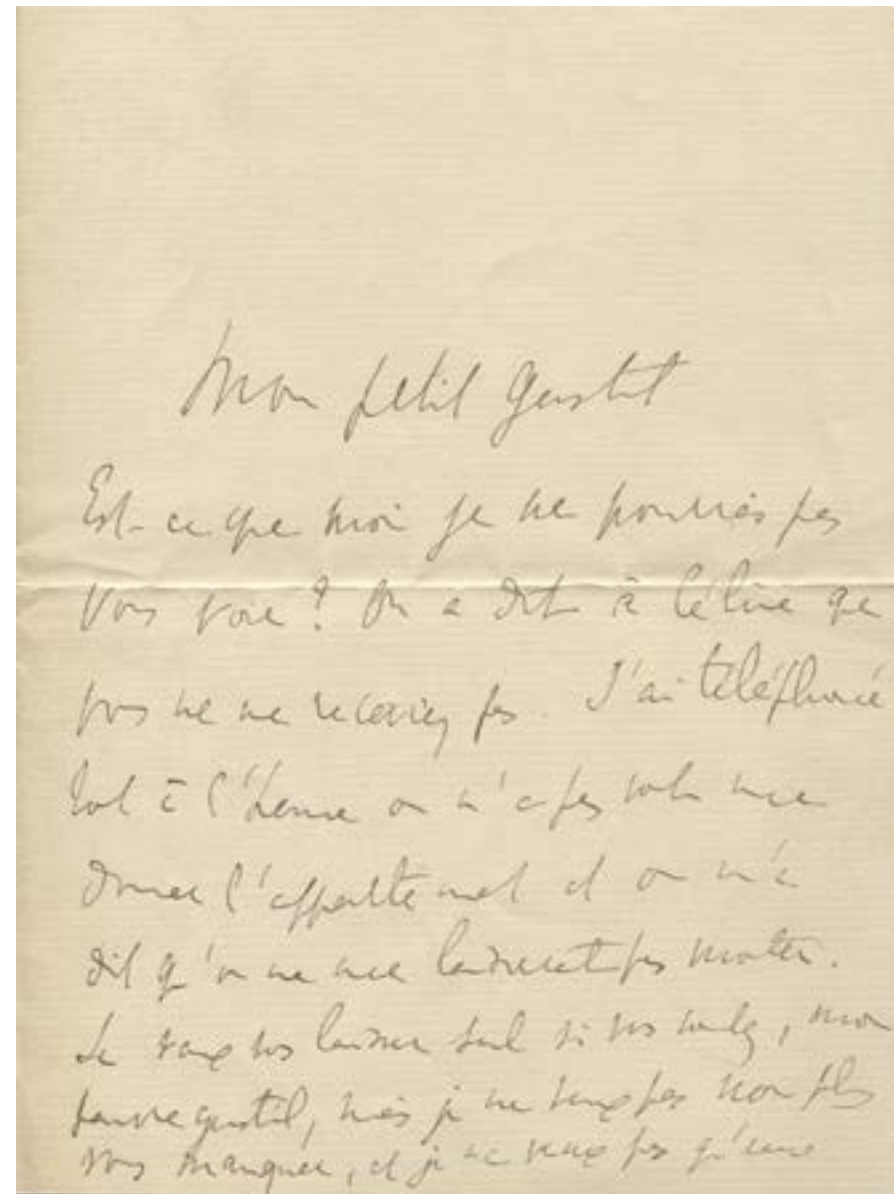 Mon petit gentil
Est-ce que moi je ne pourrais pas
vous voir ? On a dit à Céline que
vous ne me receviez pas. J'ai téléphoné
tout à l'heure on n'a pas voulu me
donner l'appartement et on m'a
dit qu'on ne me laisserait pas monter.
Je veux vous laisser seul si vous voulez, mon
pauvre gentil, mais je ne veux pas non plus
vous manquer, et je ne veux pas qu'une